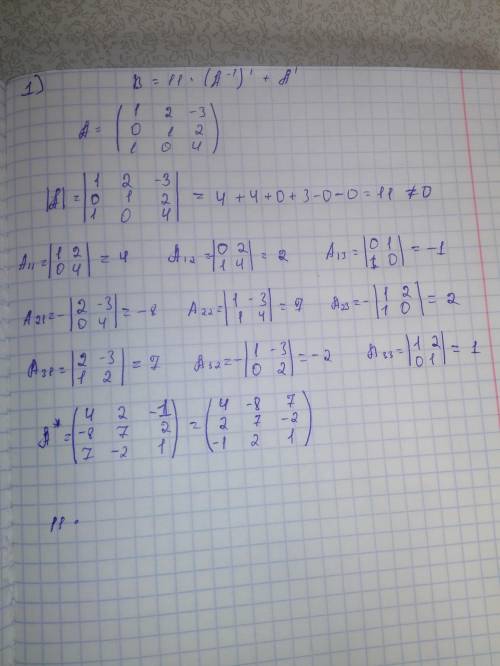 1) B = 11 · (A⁻¹)' + A'
A = ( 1 2 -3
0 1 2
1 0 4 )
|A| = | 1 2 -3
0 1 2
1 0 4 | = 4 + 4 + 0 + 3 - 0 - 0 = 11 ≠ 0
A₁₁ = | 1 2 / 0 4 | = 4 A₁₂ = | 0 2 / 1 4 | = 2 A₁₃ = | 0 1 / 1 0 | = -1
A₂₁ = - | 2 -3 / 0 4 | = -8 A₂₂ = | 1 -3 / 1 4 | = 7 A₂₃ = - | 1 2 / 1 0 | = 2
A₃₁ = | 2 -3 / 1 2 | = 7 A₃₂ = - | 1 -3 / 0 2 | = -2 A₃₃ = | 1 2 / 0 1 | = 1
A* = ( 4 2 -1 / -8 7 2 / 7 -2 1 ) = ( 4 -8 7 / 2 7 -2 / -1 2 1 )
11 ·